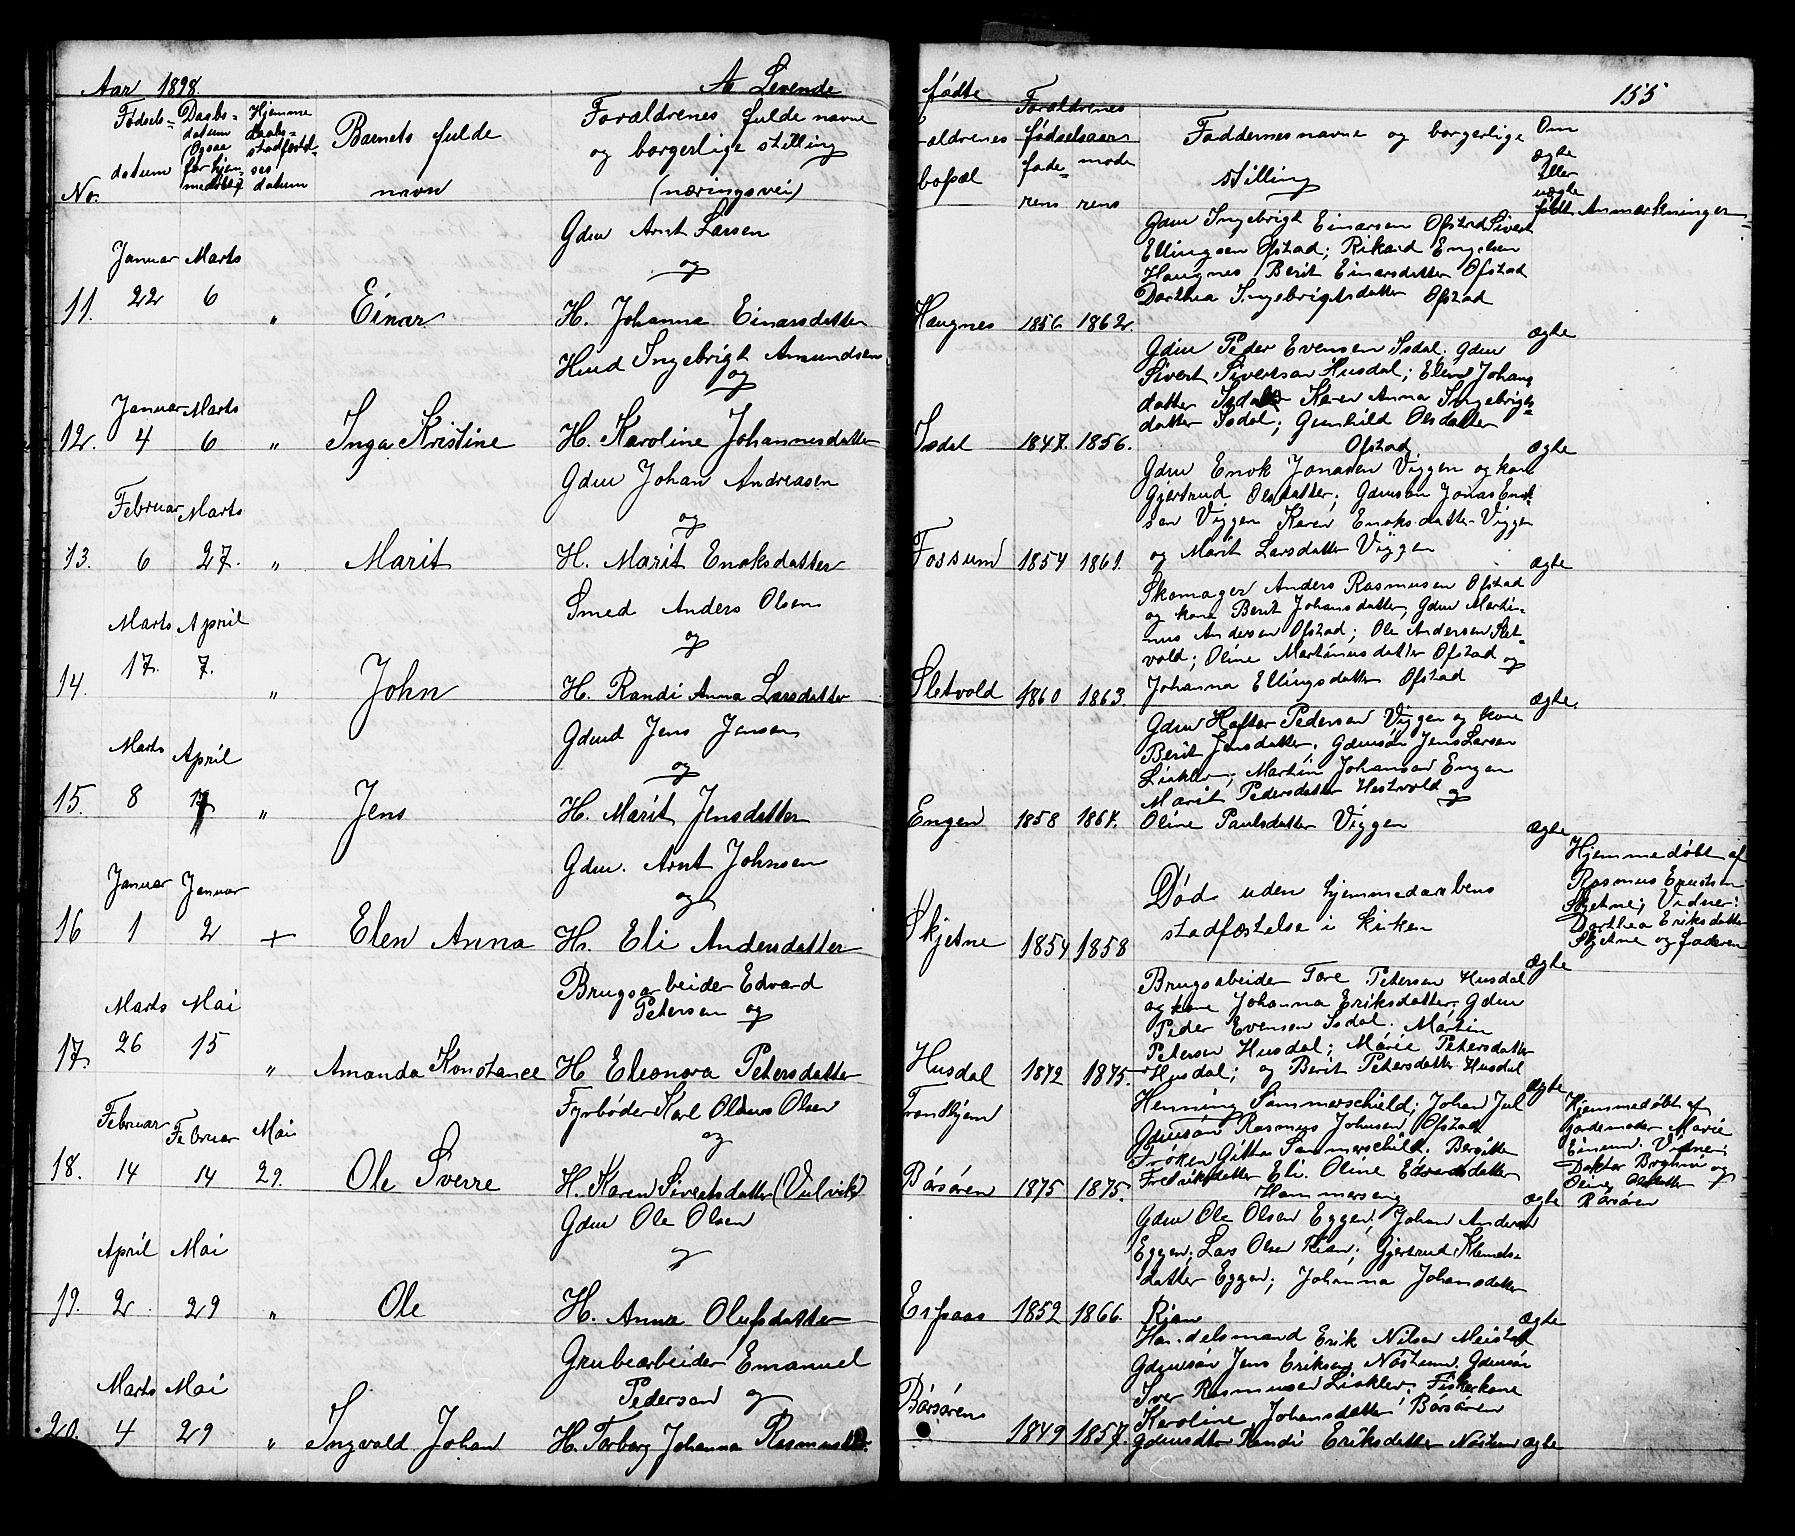 Aar 1898.
A Levende
No.
Fødsels-
datum
Daabs-
datum
(Ogsaa
for hjem-
medøbte)
Hjemme
daabs-
stadfæstel-
ses
datum
Barnets fulde
navn
Forældrenes fulde navne
og borgerlige stilling
(næringsvei)
11.
Januar Marts
22 6 "
Einar
Gdm Arnt Larsen
og
H. Johanna Einarsdatter
12.
Januar Marts
4 6 "
Inga Kristine
Hmd Ingebrigt Amundsen
og
H. Karoline Johannesdatter
13.
Februar Marts
6 27. "
Marit
Gdm Johan Andreasen
og
H. Marit Enoksdatter
14.
Marts April
17. 7. "
John
Smed Anders Olsen
og
H. Randi Anna Larsdatter
15.
Marts April
8 "
Jens
Gdmd Jens Jensen
og
H. Marit Jensdatter
16
Januar Januar
1 2 +
Elen Anna
Gdm. Arnt Johnsen
og
H. Eli Andersdatter
17.
Marts Mai
26 15 "
Amanda Konstance
Brugsarbeider Edvard
Petersen og
H Eleonora Petersdatter
18.
Februar Februar Mai
14 14 29.
Ole Sverre
Fyrbøder Karl Olsen
og
H. Karen Sivertsdatter (Vulvik)
19.
April Mai
2 29 "
Ole
Gdm Ole Olsen
og
H. Anna Olufsdatter
20.
Marts Mai
4 29 "
Ingvald Johan
Grubearbeider Emanuel
Pedersen og
H. Torborg Johanna
fødte
155
-ældrenes
bopæl
Forældrenes
fødselsaar
fade- mode
rens rens
Faddernes navne og borgerlige
stilling
Om
ægte
Eller
uægte
født
Anmærkninger
Haugnes 1856 1862.
Gdm Ingebrigt Einarsen Ofstad Sivert
Ellingsen Ofstad; Rikard Engelsen
Haugnes Berit Einarsdatter Ofstad
Dorthea Ingebrigtsdatter Ofstad
ægte
Isdal 1847. 1856.
Gdm Peder Evensen Isdal; Gdm
Sivert Sivertsen Husdal; Elen Johans
datter Isdal Karen Anna Ingebrigts-
datter Isdal; Gunhild Olsdatter
Ofstad
ægte
Fossum 1854 1861.
Gdm Enok Jonasen Viggen og kone
Gjertrud Olsdatter; Gdmsøn Jonas Enok-
sen Viggen Karen Enoksdatter Viggen
og Marit Larsdatter Viggen
ægte
Sletvold 1860 1863.
Skomager Anders Rasmusen Ofstad
og kone Berit Johansdatter, Gdm Marti-
nus Andersen Ofstad; Ole Andersen Slet-
vold; Oline Martinusdatter Ofstad og
Johanna Ellingsdatter Ofstad
ægte.
Engen 1858 1864.
Gdm Hafter Pedersen Viggen og kone
Berit Jensdatter. Gdmsøn Jens Larsen
Lisklev; Martin Johansen Engen
Marit Pedersdatter Hestvold og
Oline Paulsdatter Viggen
ægte
Skjetne 1854 1858
Død uden hjemmedaabens
stadfæstelse i kirken
ægte
Hjemmedøbt af
Rasmus
Skjetne; Vidner:
Dorthea Eriksdatter
Skjetne og faderen
Husdal 1872 1875.
Brugsabeider Tore Petersen Husdal
og kone Johanna Eriksdatter, Gdm
Peder Evensen Isdal. Martin
Petersen Husdal; Marie Petersdatter
Husdal; og Berit Petersdatter Husdal
ægte
Trondhjem
Børsøren 1875 1875.
Henning Sommerschield; Johan Jul
Gdmsøn Rasmus Johnsen Ofstad
Frøken Gitta Sommerschield. Bergitte
Fredriksdatter Eli. Oline Edvardsdatter
Hammerseng
ægte
Hjemmedøbt af
Jordemoder Marie
Einem. Vidner:
Doktor og
Oline Olsdatter
Børsøren
Espaas 1852 1866.
Gdm Ole Olsen Eggen; Johan Andersen
Eggen; Lars Olsen Rian; Gjertrud Klemets-
datter Eggen; Johanna Johansdatter
Rian
ægte
Børsøren 1849 1857.
Handelsmand Erik Nilsen Meistad
Gdmsøn Jens Eriksen Nøstum. Gdmsøn
Iver Rasmusen Lisklev. Fiskerkone
Karoline Johansdatter Børsøren
Gdmsdtr Randi Eriksdatter Nøstum
ægte